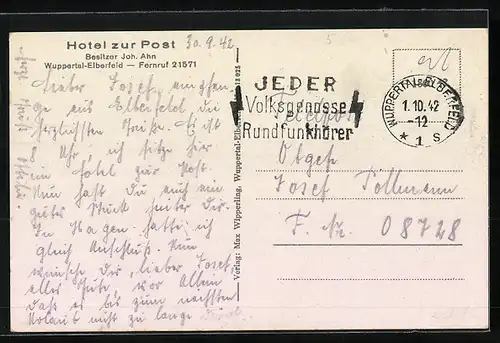 Hotel zur Post
Besitzer Joh. Ahn
Wuppertal-Elberfeld — Fernruf 21571
30.9.42
Lieber Josef, empfan-
ge aus Elberfeld die
herzlichsten Grüße. Es ist
8 Uhr, ich sitze hier
im Hotel zur Post.
Nun hast Du auch ein
gutes Stück hinter dir.
In Hagen hatte ich
gleich Anschluß. Nun
wünsche dir, lieber Josef,
alles Gute vor Allem
daß es bis zum nächsten
nicht zu lange
Verlag: Max Wipperling, Wuppertal-Elberfeld
JEDER
Volksgenosse
Rundfunkhörer
WUPPERTAL-ELBERFELD
1.10.42
-12
* 1 s
Feldpost
Obgefr.
Josef Pöllmann
F. Nr. 08728